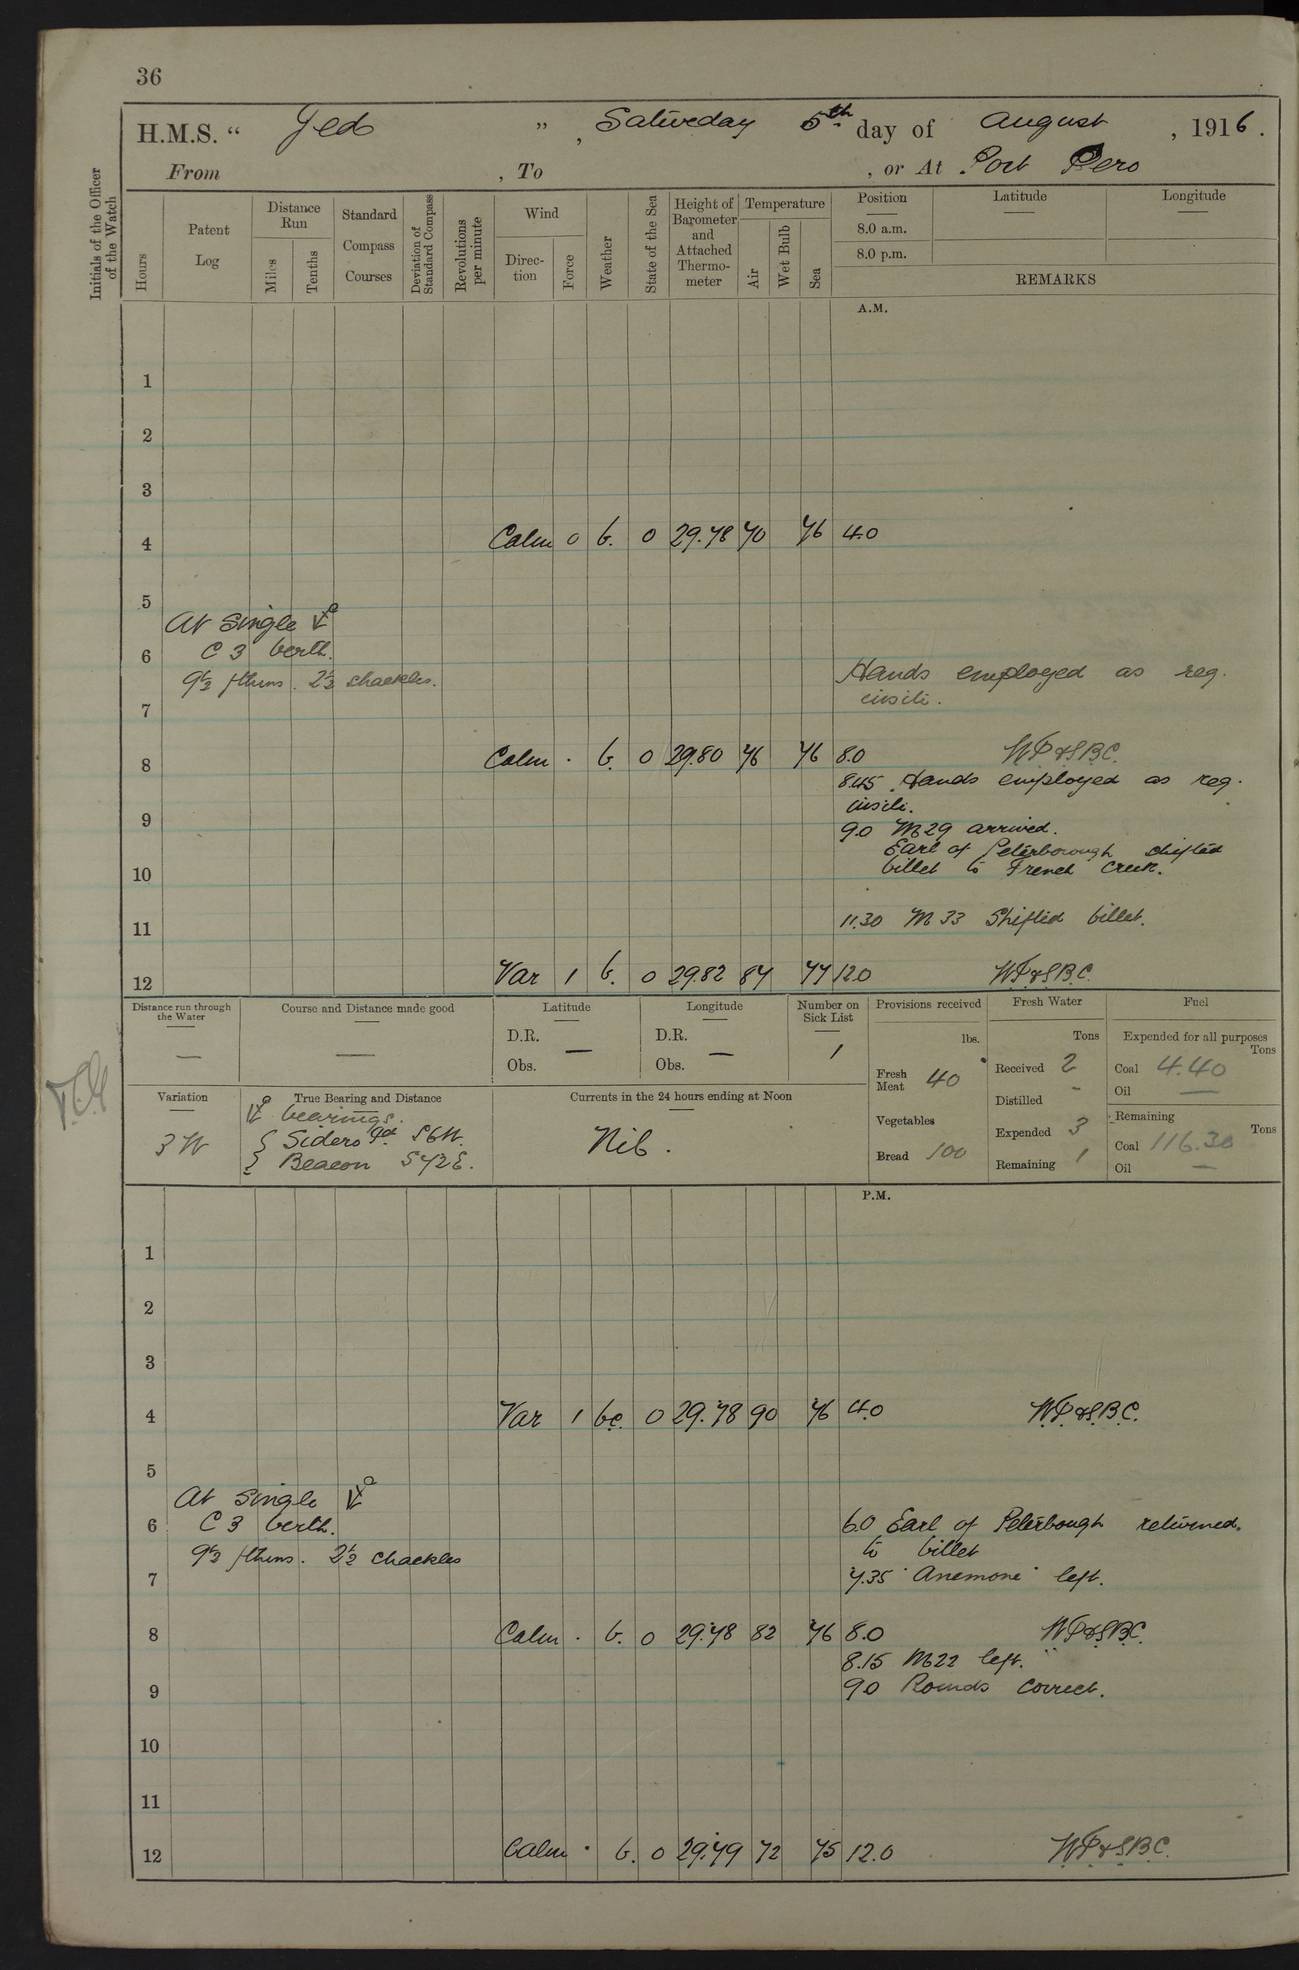 36
H.M.S. “ Jed ” , Saturday 5th day of August , 1916 .
From , To , or At Port Iero
Initials of the Officer of the Watch
Hours
Patent Log
Distance Run
Miles
Tenths
Standard Compass Courses
Deviation of Standard Compass
Revolutions per minute
Wind
Direction
Force
Weather
State of the Sea
Height of Barometer and Attached Thermometer
Temperature
Air
Wet Bulb
Sea
Position
8.0 a.m.
8.0 p.m.
Latitude
Longitude
REMARKS
A.M.
1
2
3
4 Calm 0 b. 0 29.78 70 76 4.0
5
At Single
6 C 3 berth.
9½ fthms. 2½ shackles.
Hands employed as req.
7 insili.
8 Calm . b. 0 29.80 76 76 8.0 W.P.&S.B.C.
8.45 Hands employed as req.
insili.
9 9.0 M29 arrived.
Earl of Peterborough shifted
10 billet to French Creek.
11 11.30 M 33 Shifted billet.
12 Var 1 b. 0 29.82 87 77 12.0 W.P.&S.B.C.
Distance run through the Water
—
Course and Distance made good
—
Latitude
D.R.
Obs. —
Longitude
D.R.
Obs. —
Number on Sick List
1
Provisions received
lbs.
Fresh Meat 40
Vegetables
Bread 100
Fresh Water
Tons
Received 2
Distilled -
Expended 3
Remaining 1
Fuel
Expended for all purposes
Tons
Coal 4.40
Oil —
Remaining
Tons
Coal 116.30
Oil —
Variation
3 W
True Bearing and Distance
bearings.
Sidero Pt S6W.
Beacon S42E.
Currents in the 24 hours ending at Noon
Nil .
P.M.
1
2
3
4 Var 1 bc. 0 29.78 90 76 4.0 W.P.&S.B.C.
5
At Single
6 C 3 berth.
9½ fthms. 2½ shackles
6.0 Earl of Peterbough returned.
to billet
7 7.35 "Anemone" left.
8 Calm . b. 0 29.78 82 76 8.0 W.P.&S.B.C.
8.15 M22 left.
9 9.0 Rounds correct.
10
11
12 Calm . b. 0 29.79 72 75 12.0 W.P.&S.B.C.